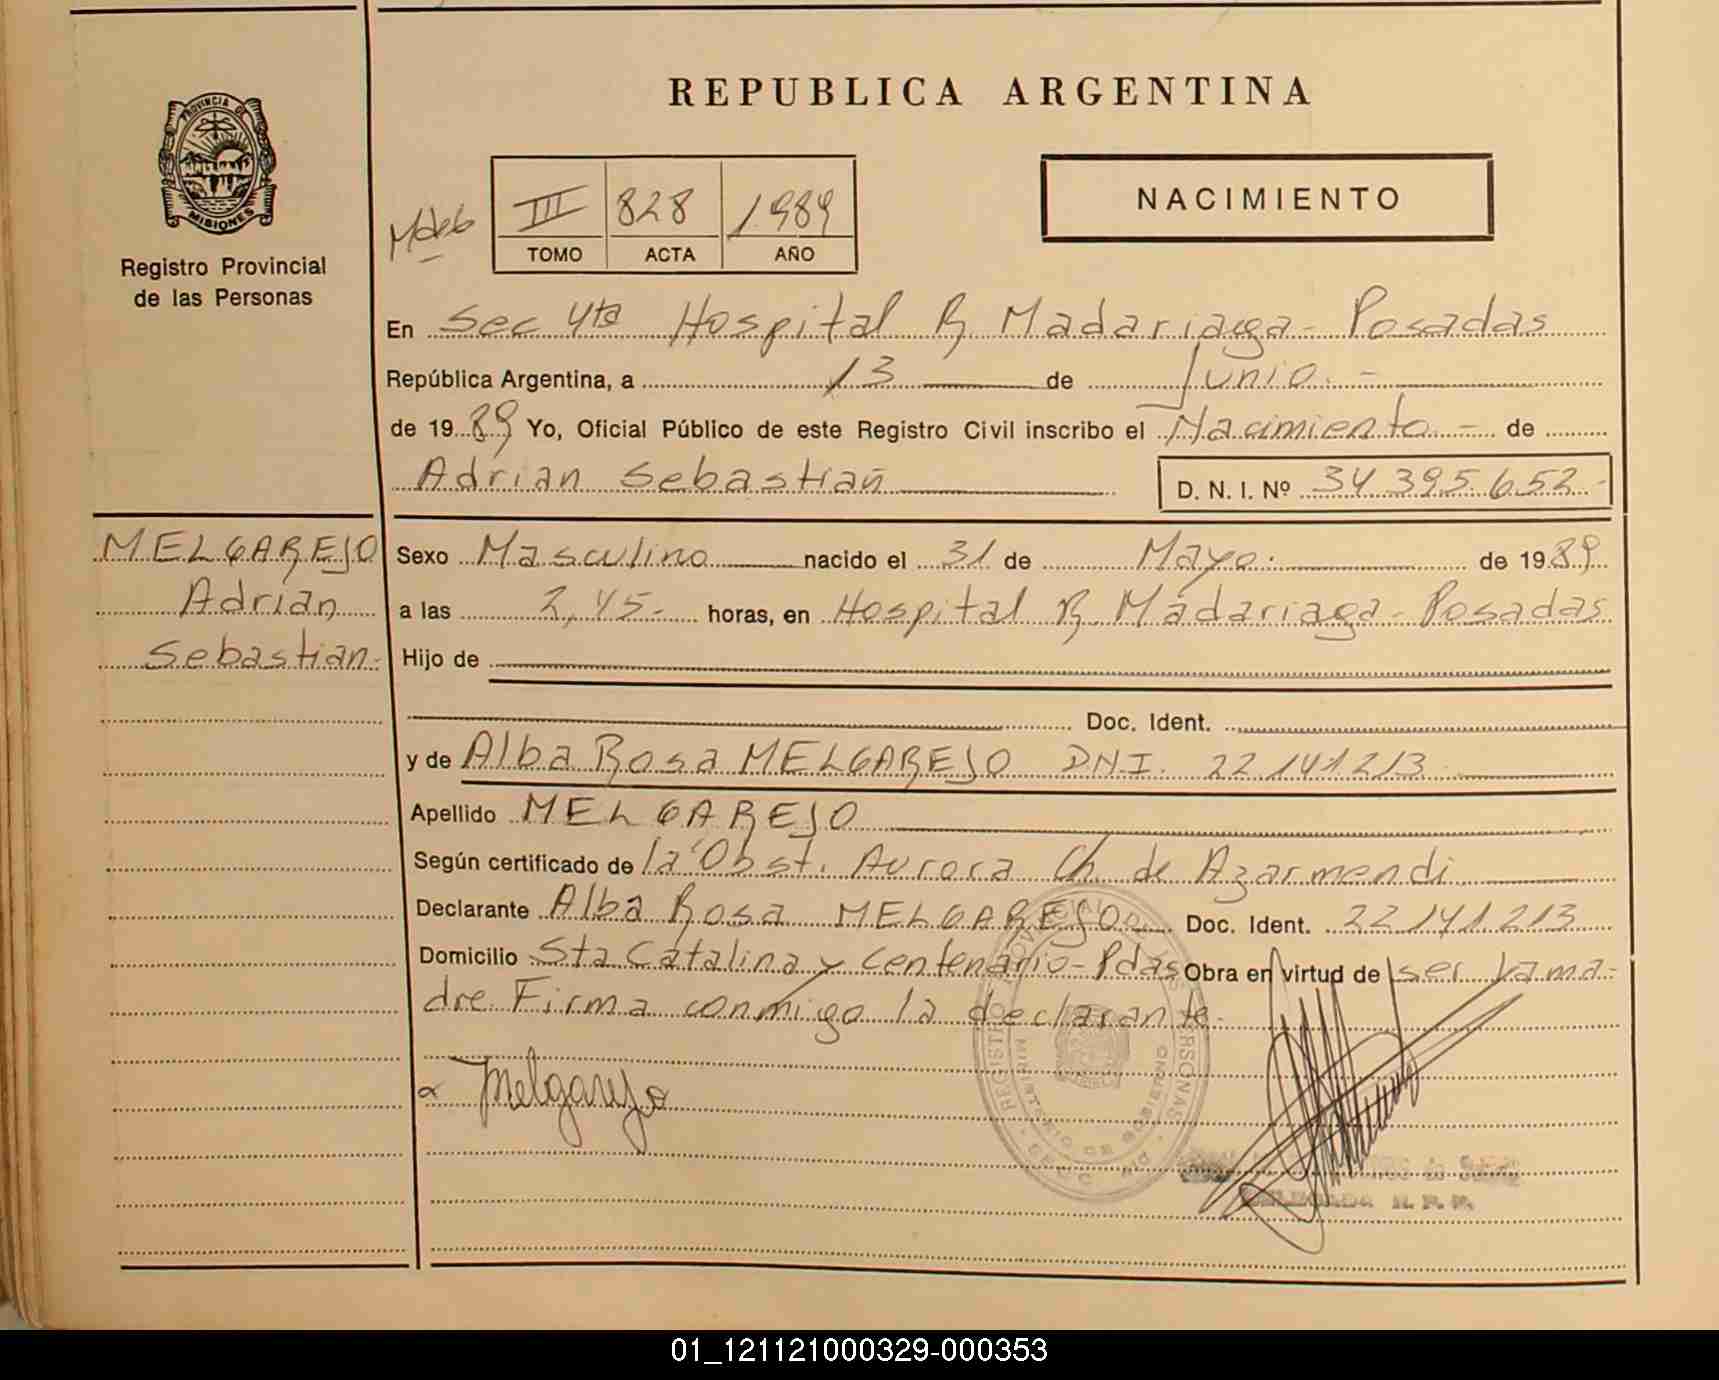 REPUBLICA ARGENTINA
PROVINCIA DE
MISIONES
Registro Provincial
de las Personas
III 828 1989
TOMO ACTA AÑO
NACIMIENTO
En Sec 4ta Hospital R. Madariaga - Posadas
República Argentina, a 13 de Junio. -
de 1989 Yo, Oficial Público de este Registro Civil inscribo el Nacimiento - de
Adrian Sebastian D. N. I. Nº 34 395 652 -
MELGAREJO
Adrian
Sebastian -
Sexo Masculino nacido el 31 de Mayo. de 1989
a las 2,45 - horas, en Hospital R. Madariaga - Posadas
Hijo de
Doc. Ident.
y de Alba Rosa MELGAREJO DNI. 22 141 213
Apellido MELGAREJO
Según certificado de la Obst. Aurora Ch. de Azarmendi
Declarante Alba Rosa MELGAREJO Doc. Ident. 22 141 213
Domicilio Sta Catalina y Centenario - Pdas Obra en virtud de ser la ma-
dre. Firma conmigo la declarante -
Melgarejo
REGISTRO PROVINCIAL DE LAS PERSONAS
MINISTERIO DE GOBIERNO
01_121121000329-000353